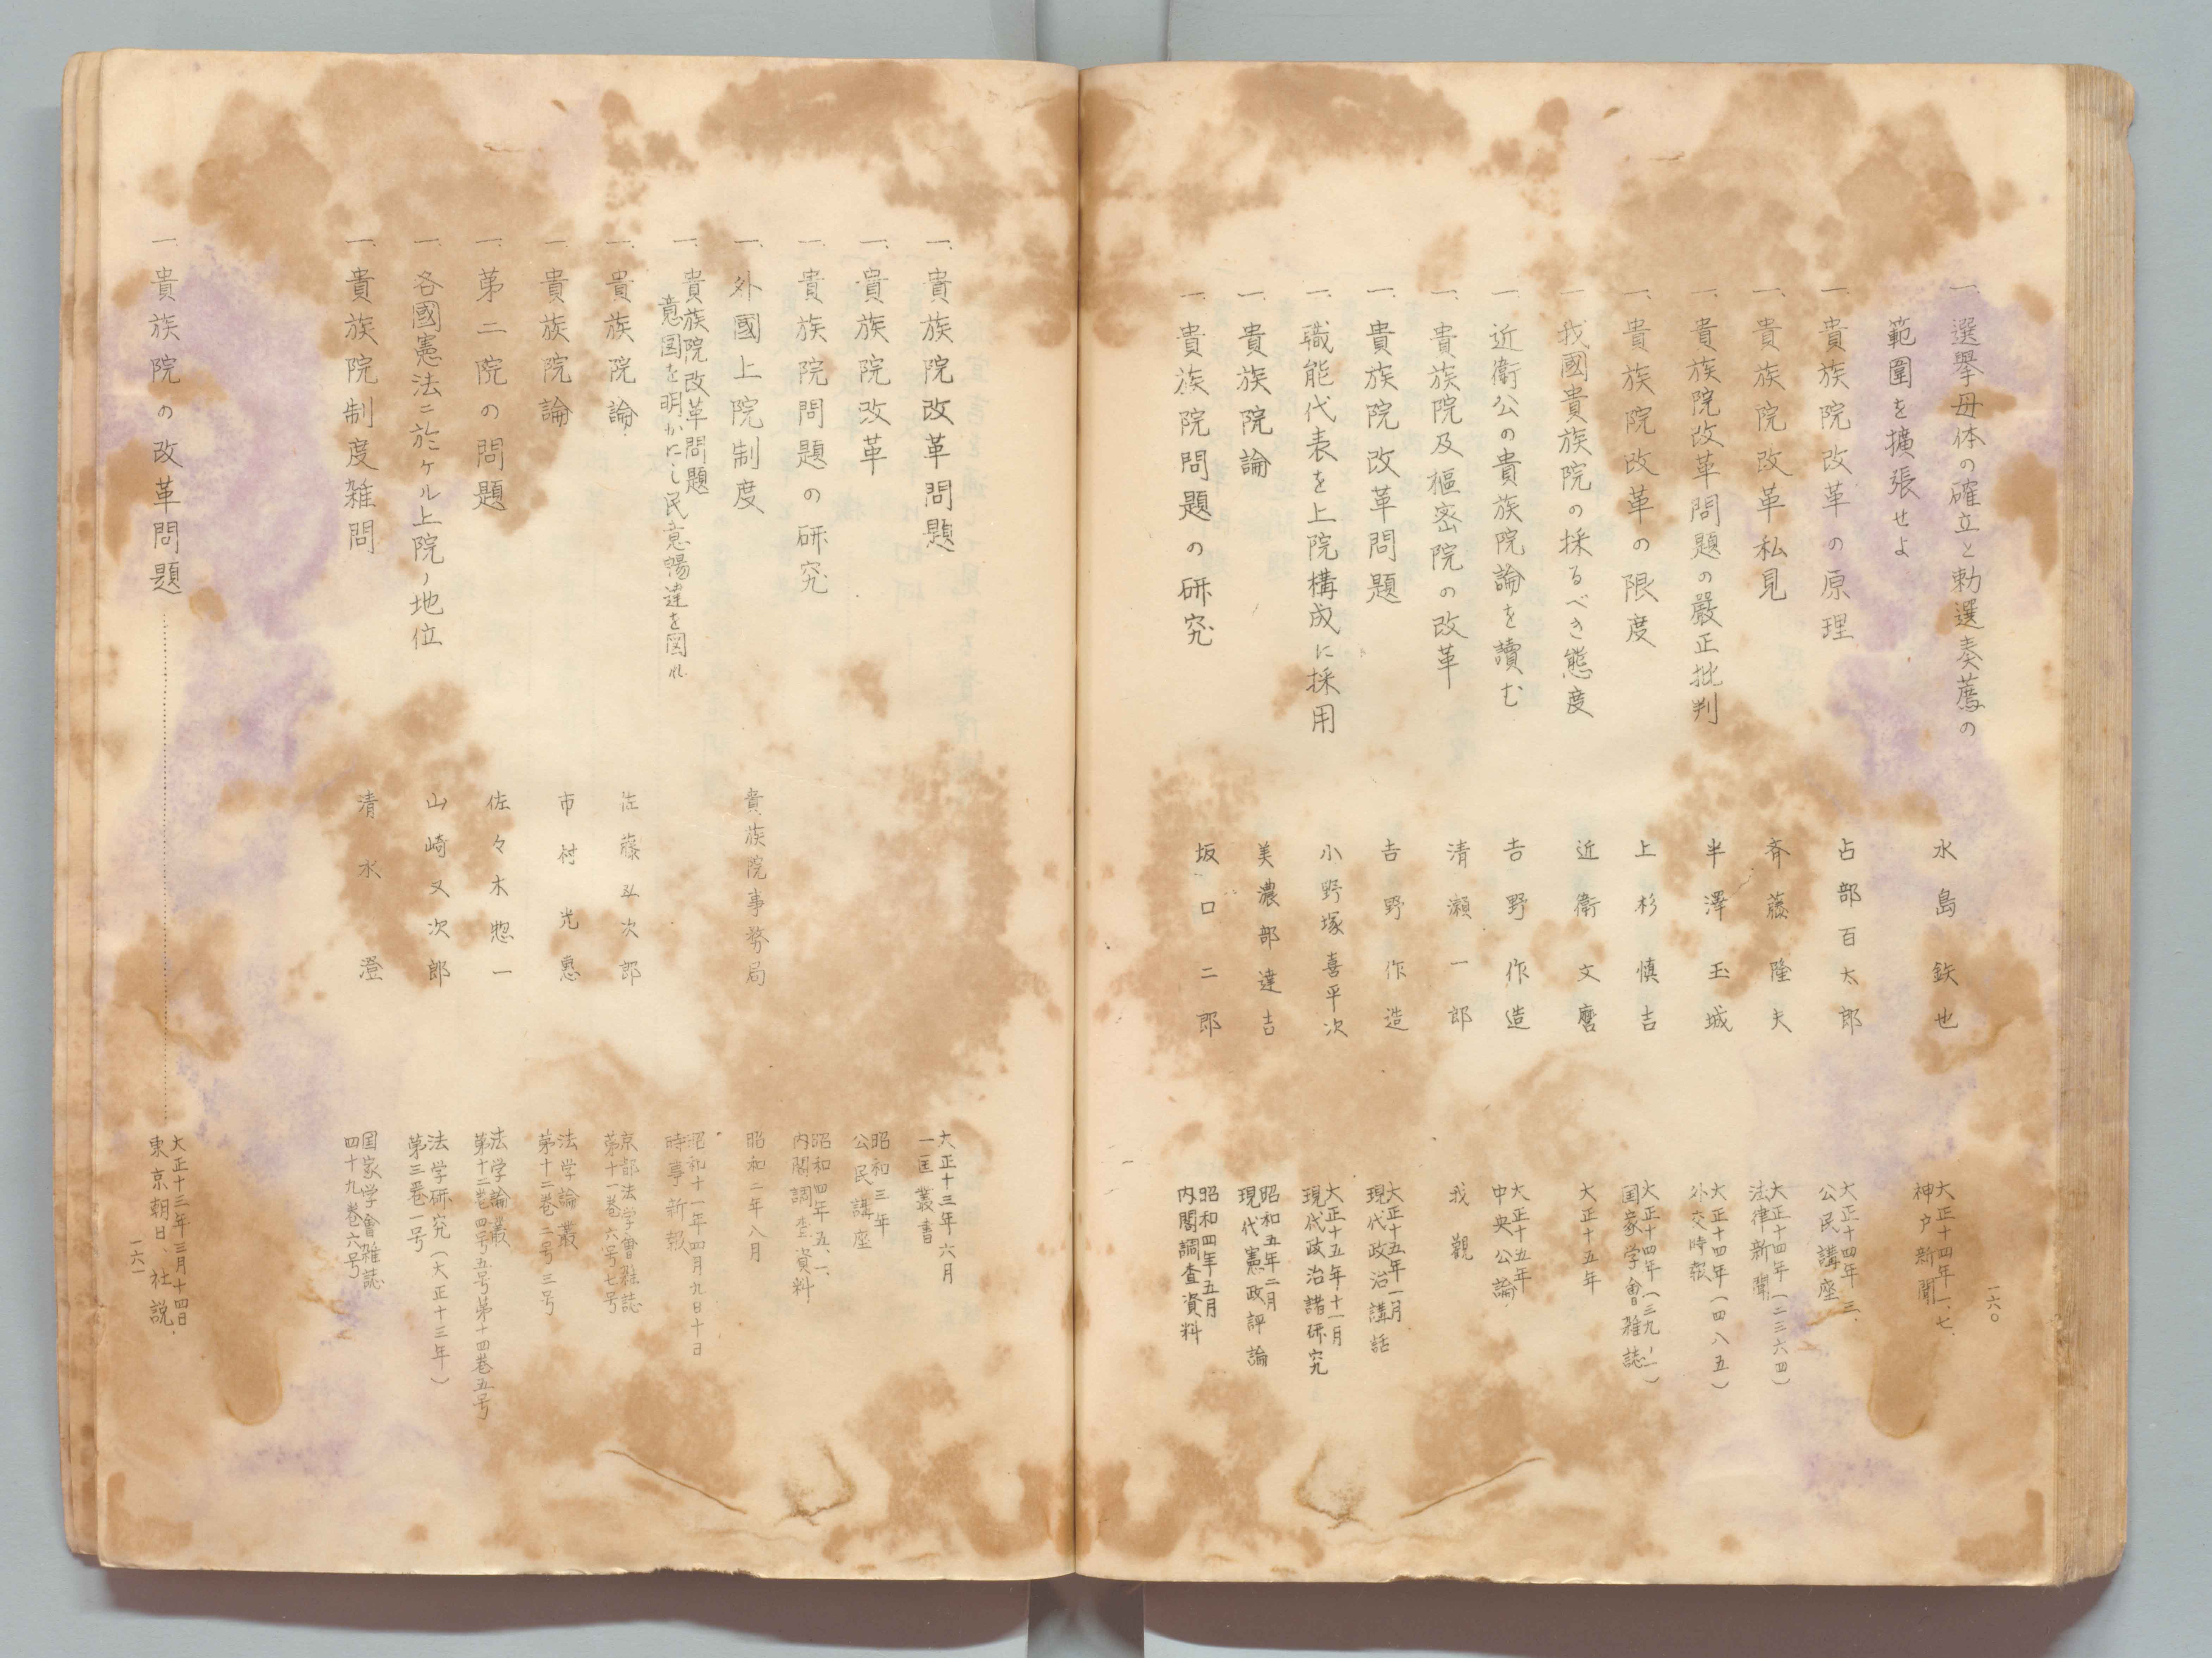 一、選擧母体の確立と勅選奏薦の
範圍を擴張せよ 水島鉄也 大正十四年一、七、
神戸新聞
一、貴族院改革の原理 占部百太郎 大正十四年三、
公民講座
一、貴族院改革私見 斉藤隆夫 大正十四年(二三六四)
法律新聞
一、貴族院改革問題の嚴正批判 半澤玉城 大正十四年(四八五)
外交時報
一、貴族院改革の限度 上杉慎吉 大正十四年(三九ノ一)
国家学會雑誌
一、我國貴族院の採るべき態度 近衛文麿 大正十五年
一、近衛公の貴族院論を讀む 吉野作造 大正十五年
中央公論
一、貴族院及樞密院の改革 清瀬一郎 我觀
一、貴族院改革問題 吉野作造 大正十五年一月
現代政治講話
一、職能代表を上院構成に採用 小野塚喜平次 大正十五年十一月
現代政治諸研究
一、貴族院論 美濃部達吉 昭和五年二月
現代憲政評論
一、貴族院問題の研究 坂口二郎 昭和四年五月
内閣調査資料
一六〇
一、貴族院改革問題 大正十三年六月
一匡叢書
一、貴族院改革 昭和三年
公民講座
一、貴族院問題の研究 昭和四年五、一、
内閣調査資料
一、外國上院制度 貴族院事務局 昭和二年八月
一、貴族院改革問題
意図を明かにし民意暢達を図れ 昭和十一年四月九日十日
時事新報
一、貴族院論 佐藤丑次郎 京都法学會雑誌
第十一巻六号七号
一、貴族院論 市村光惠 法学論叢
第十二巻二号三号
一、第二院の問題 佐々木惣一 法学論叢
第十二巻四号五号第十四巻五号
一、各國憲法ニ於ケル上院ノ地位 山崎又次郎 法学研究(大正十三年)
第三巻一号
一、貴族院制度雑問 清水澄 国家学會雑誌
四十九巻六号
一、貴族院の改革問題 大正十三年三月十四日
東京朝日、社説、
一六一